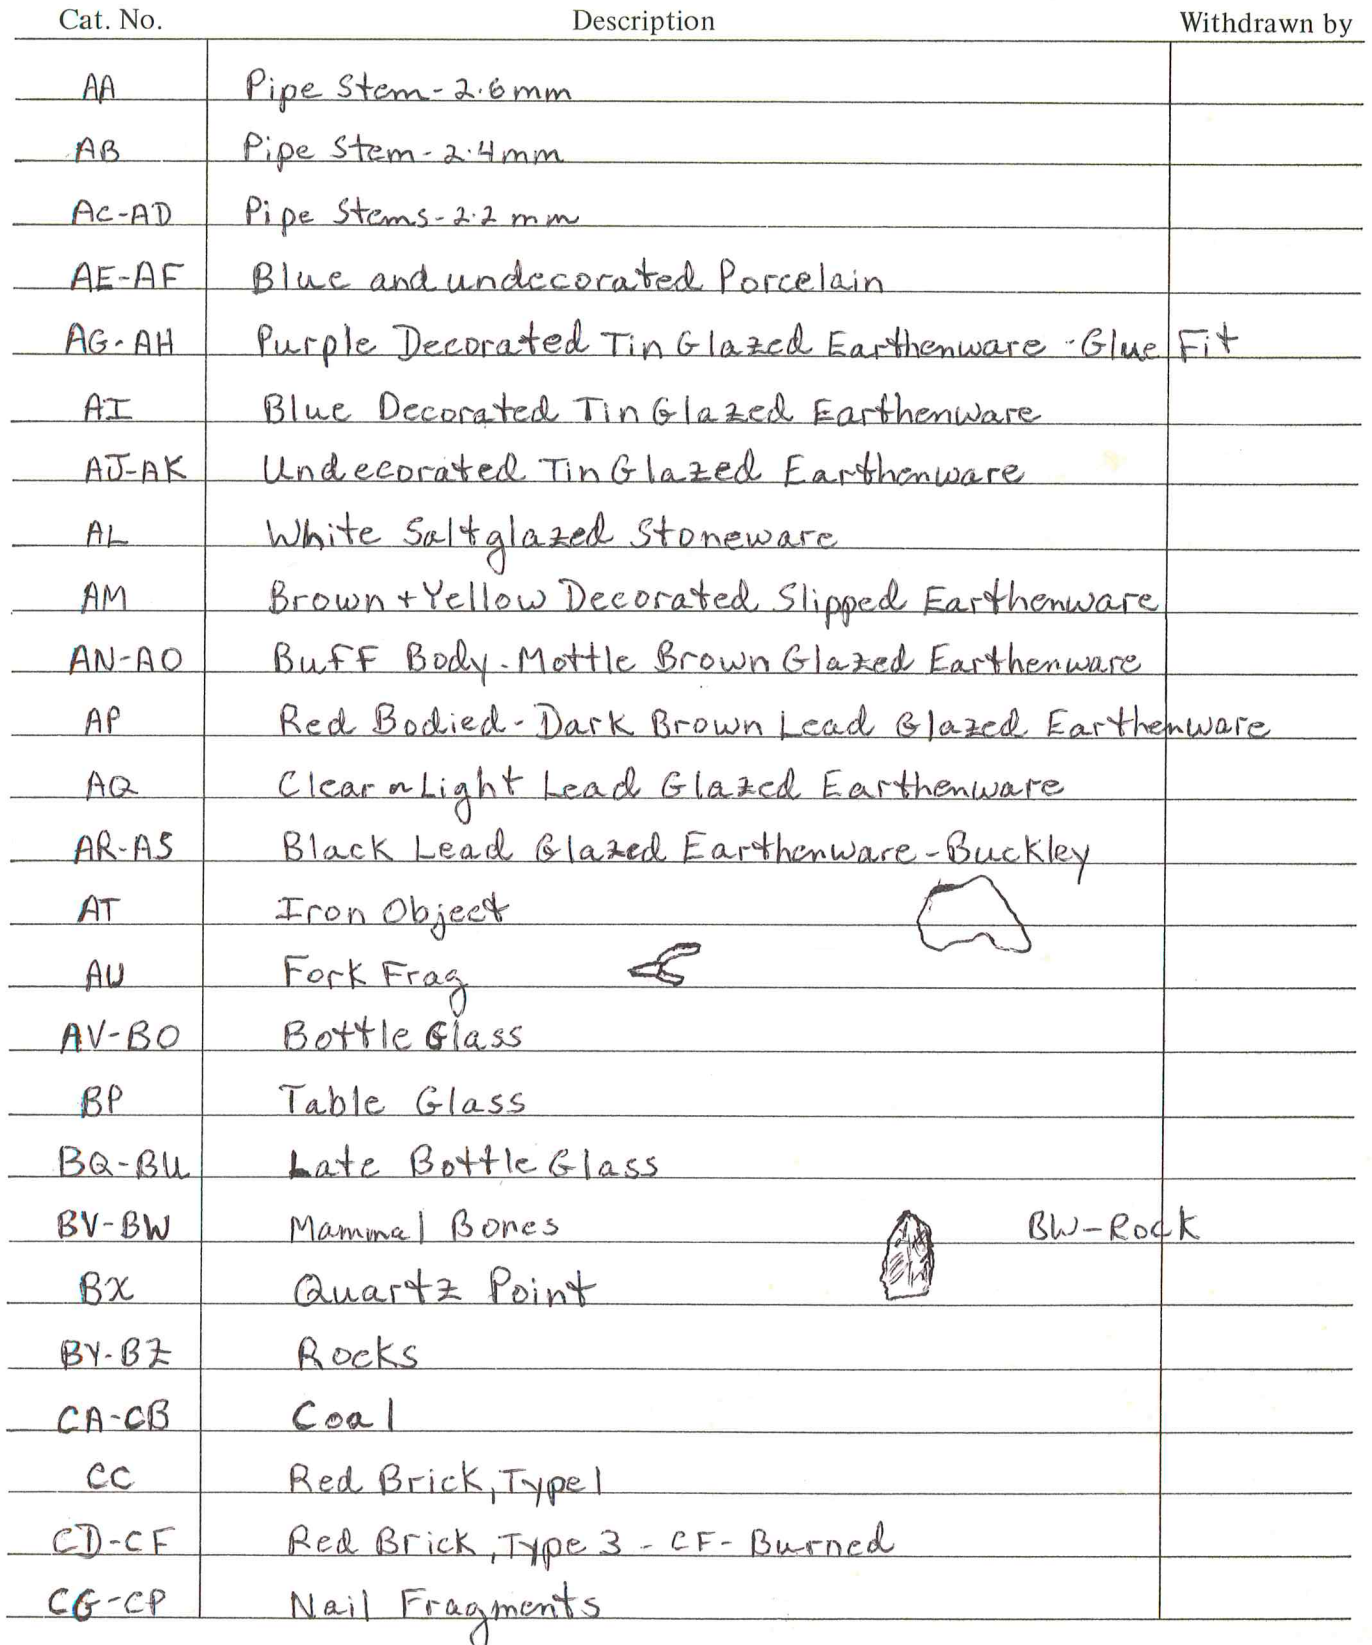 Cat. No. Description Withdrawn by
AA Pipe Stem - 2.6 mm
AB Pipe Stem - 2.4 mm
AC-AD Pipe Stems - 2.2 mm
AE-AF Blue and undecorated Porcelain
AG-AH Purple Decorated Tin Glazed Earthenware - Glue Fit
AI Blue Decorated Tin Glazed Earthenware
AJ-AK Undecorated Tin Glazed Earthenware
AL White Saltglazed Stoneware
AM Brown + Yellow Decorated Slipped Earthenware
AN-AO Buff Body - Mottle Brown Glazed Earthenware
AP Red Bodied - Dark Brown Lead Glazed Earthenware
AQ Clear Light Lead Glazed Earthenware
AR-AS Black Lead Glazed Earthenware - Buckley
AT Iron Object
AU Fork Frag
AV-BO Bottle Glass
BP Table Glass
BQ-BU Late Bottle Glass
BV-BW Mammal Bones BW-Rock
BX Quartz Point
BY-BZ Rocks
CA-CB Coal
CC Red Brick, Type 1
CD-CF Red Brick, Type 3 - CF - Burned
CG-CP Nail Fragments